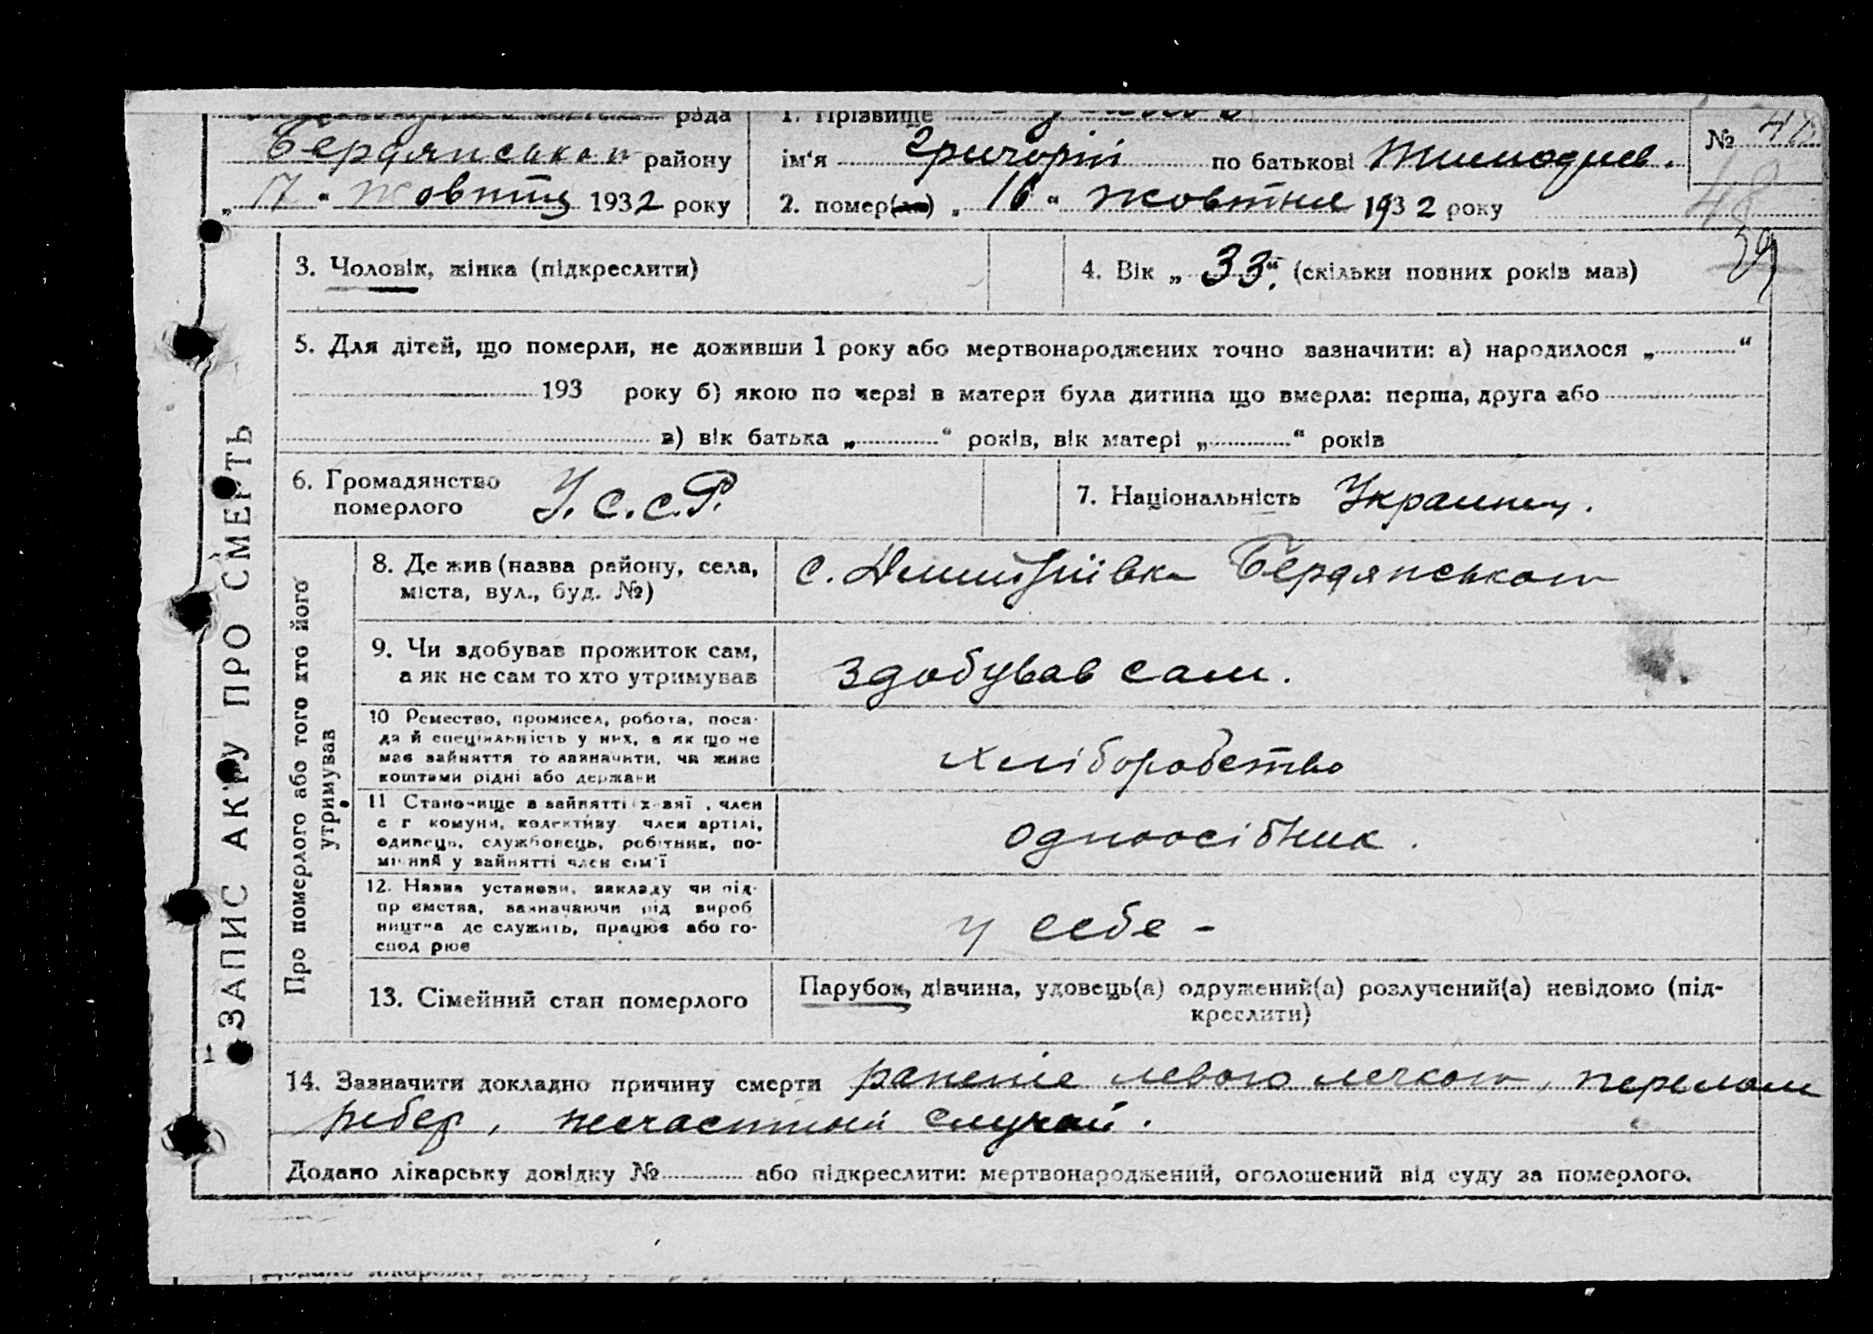 рада
1. Прізвище
Бердянського району
ім'я Григорій по батькові Тимофіев.
№ 47
48
39
„17“ жовтня 1932 року
2. помер(ла) „16“ жовтня 1932 року
3. Чоловік, жінка (підкреслити)
4. Вік „33“. (скільки повних років мав)
5. Для дітей, що померли, не доживши 1 року або мертвонароджених точно зазначити: а) народилося „ “
193 року б) якою по черзі в матери була дитина що вмерла: перша, друга або
в) вік батька „ “ років, вік матері „ “ років
6. Громадянство
померлого
У.С.С.Р.
7. Національність Украинец.
ЗАПИС АКТУ ПРО СМЕРТЬ
1
Про померлого або того хто його
утримував
8. Де жив (назва району, села,
міста, вул., буд. №)
с. Дмитрівка Бердянського
9. Чи здобував прожиток сам,
а як не сам то хто утримував
здобував сам.
10 Ремество, промисел, робота, поса-
да й спеціяльність у них, а як що не
мав зайняття то зазначити, чи живе
коштами рідні або держави
хліборобство
11 Становище в зайнятті х в ї , член
с г комуни, колективу член артілі,
одинець, службовець, робітник, по-
мічний у зайнятті член сім'ї
одноосібник.
12. Назва установи, закладу чи під-
пр ємства, зазначаючи рід вироб
ництва де служить, працює або го-
спод рює
у себе -
13. Сімейний стан померлого
Парубок, дівчина, удовець(а) одружений(а) розлучений(а) невідомо (під-
креслити)
14. Зазначити докладно причину смерти ранение левого легкого, перелом
ребер, нечастний случай.
Додано лікарську довідку № або підкреслити: мертвонароджений, оголошений від суду за померлого.